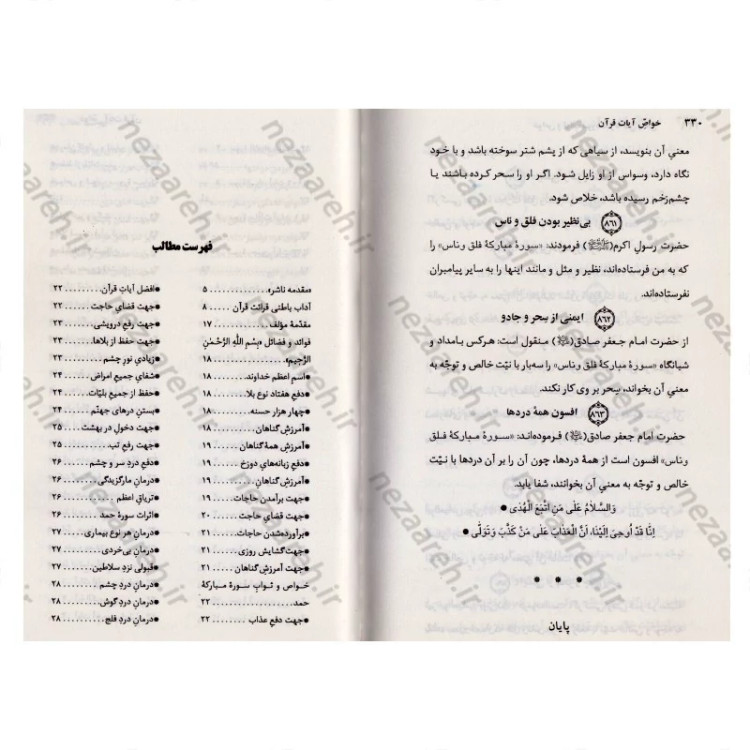 ۳۳۰ خواصّ آیات قرآن
معنیِ آن بنویسد، از سیاهی که از پشم شتر سوخته باشد و با خود
نگاه دارد، وسواس از او زایل شود. اگر او را سحر کرده باشند یا
چشم‌زخم رسیده باشد، خلاص شود.
۸۶۱ بی‌نظیر بودن فلق و ناس
حضرت رسولِ اکرم(ﷺ) فرمودند: «سورهٔ مبارکهٔ فلق وناس» را
که به من فرستاده‌اند، نظیر و مثل و مانند اینها را به سایر پیامبران
نفرستاده‌اند.
۸۶۲ ایمنی از سِحر و جادو
از حضرت امام جعفر صادق() منقول است: هرکس بامداد و
شبانگاه «سورهٔ مبارکهٔ فلق وناس» را سه‌بار با نیّت خالص و توجّه به
معنیِ آن بخواند، سِحر بر وی کار نکند.
۸۶۳ افسون همهٔ دردها
حضرت امام جعفر صادق() فرموده‌اند: «سورهٔ مبارکهٔ فلق
وناس» افسون است از همهٔ دردها، چون آن را بر آن دردها با نیّت
خالص و توجّه به معنیِ آن بخوانند، شفا یابد.
وَالسَّلَامُ عَلَىٰ مَنِ اتَّبَعَ الْهُدَىٰ
إِنَّا قَدْ أُوحِيَ إِلَيْنَا، أَنَّ الْعَذَابَ عَلَىٰ مَنْ كَذَّبَ وَتَوَلَّىٰ
* * *
پایان
فهرست مطالب
«مقدمه ناشر» ۵
آداب باطنی قرائت قرآن ۸
مقدّمهٔ مؤلف ۱۷
فوائد و فضائل «بِسْمِ اللَّهِ الرَّحْمٰنِ
الرَّحِيمِ» ۱۸
اسمِ اعظمِ خداوند ۱۸
دفعِ هفتاد نوع بلا ۱۸
چهار هزار حسنه ۱۸
آمرزشِ گناهان ۱۸
آمرزشِ همهٔ گناهان ۱۹
دفعِ زبانه‌های دوزخ ۱۹
آمرزشِ گناهان ۱۹
جهت برآمدن حاجات ۱۹
جهت قضایِ حاجت ۲۰
برآورده‌شدن حاجات ۲۱
جهت‌گشایش روزی ۲۱
جهت آمرزش گناهان ۲۱
خواص و ثوابِ سورهٔ مبارکهٔ
حمد ۲۲
جهت دفع عذاب ۲۲
افضلِ آیاتِ قرآن ۲۲
جهت قضایِ حاجت ۲۲
جهت رفعِ درویشی ۲۳
جهت حفظ از بلاها ۲۳
زیادیِ نورِ چشم ۲۳
شفایِ جمیعِ امراض ۲۴
حفظ از جمیعِ بلیّات ۲۴
بستنِ درهای جهنّم ۲۴
جهت دخول در بهشت ۲۵
جهت رفعِ تب ۲۵
دفعِ دردِ سر و چشم ۲۶
درمانِ مارگزیدگی ۲۶
تریاقِ اعظم ۲۶
اثرات سورهٔ حمد ۲۶
درمانِ هر نوع بیماری ۲۷
درمانِ بی‌خردی ۲۷
قبولی نزدِ سلاطین ۲۷
درمانِ دردِ چشم ۲۸
درمانِ دردِ گوش ۲۸
درمانِ دردِ فلج ۲۸
nezaareh.ir